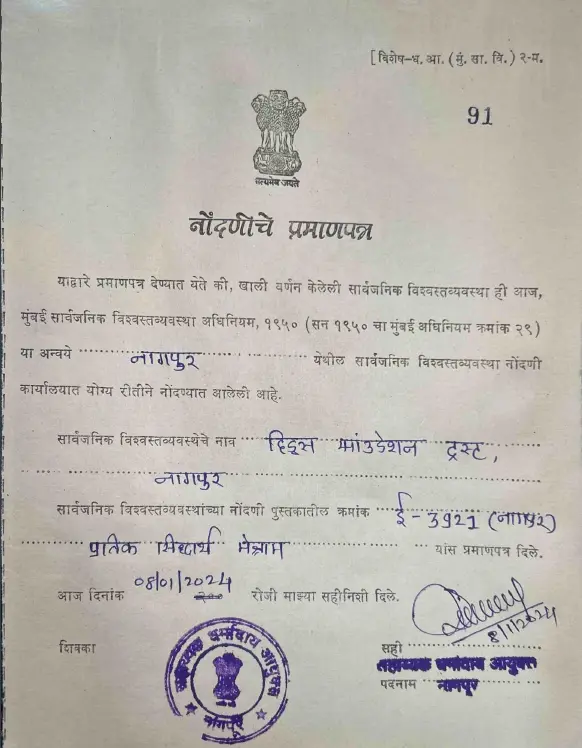 [विशेष-ध. आ. (मुं. सा. वि.) २-म.
91
सत्यमेव जयते
नोंदणीचे प्रमाणपत्र
याद्वारे प्रमाणपत्र देण्यात येते की, खाली वर्णन केलेली सार्वजनिक विश्वस्तव्यवस्था ही आज,
मुंबई सार्वजनिक विश्वस्तव्यवस्था अधिनियम, १९५० (सन १९५० चा मुंबई अधिनियम क्रमांक २९)
या अन्वये नागपुर येथील सार्वजनिक विश्वस्तव्यवस्था नोंदणी
कार्यालयात योग्य रीतीने नोंदण्यात आलेली आहे.
सार्वजनिक विश्वस्तव्यवस्थेचे नाव फाउंडेशन ट्रस्ट,
नागपुर
सार्वजनिक विश्वस्तव्यवस्थांच्या नोंदणी पुस्तकातील क्रमांक ई-3921 (नागपूर)
प्रतिक सिध्दार्थ मेश्राम यांस प्रमाणपत्र दिले.
आज दिनांक 08/01/2024 रोजी माझ्या सहीनिशी दिले.
8/1/2024
शिक्का
सही
सहाय्यक धर्मादाय आयुक्त
पदनाम नागपूर
सहाय्यक धर्मादाय आयुक्त
नागपूर